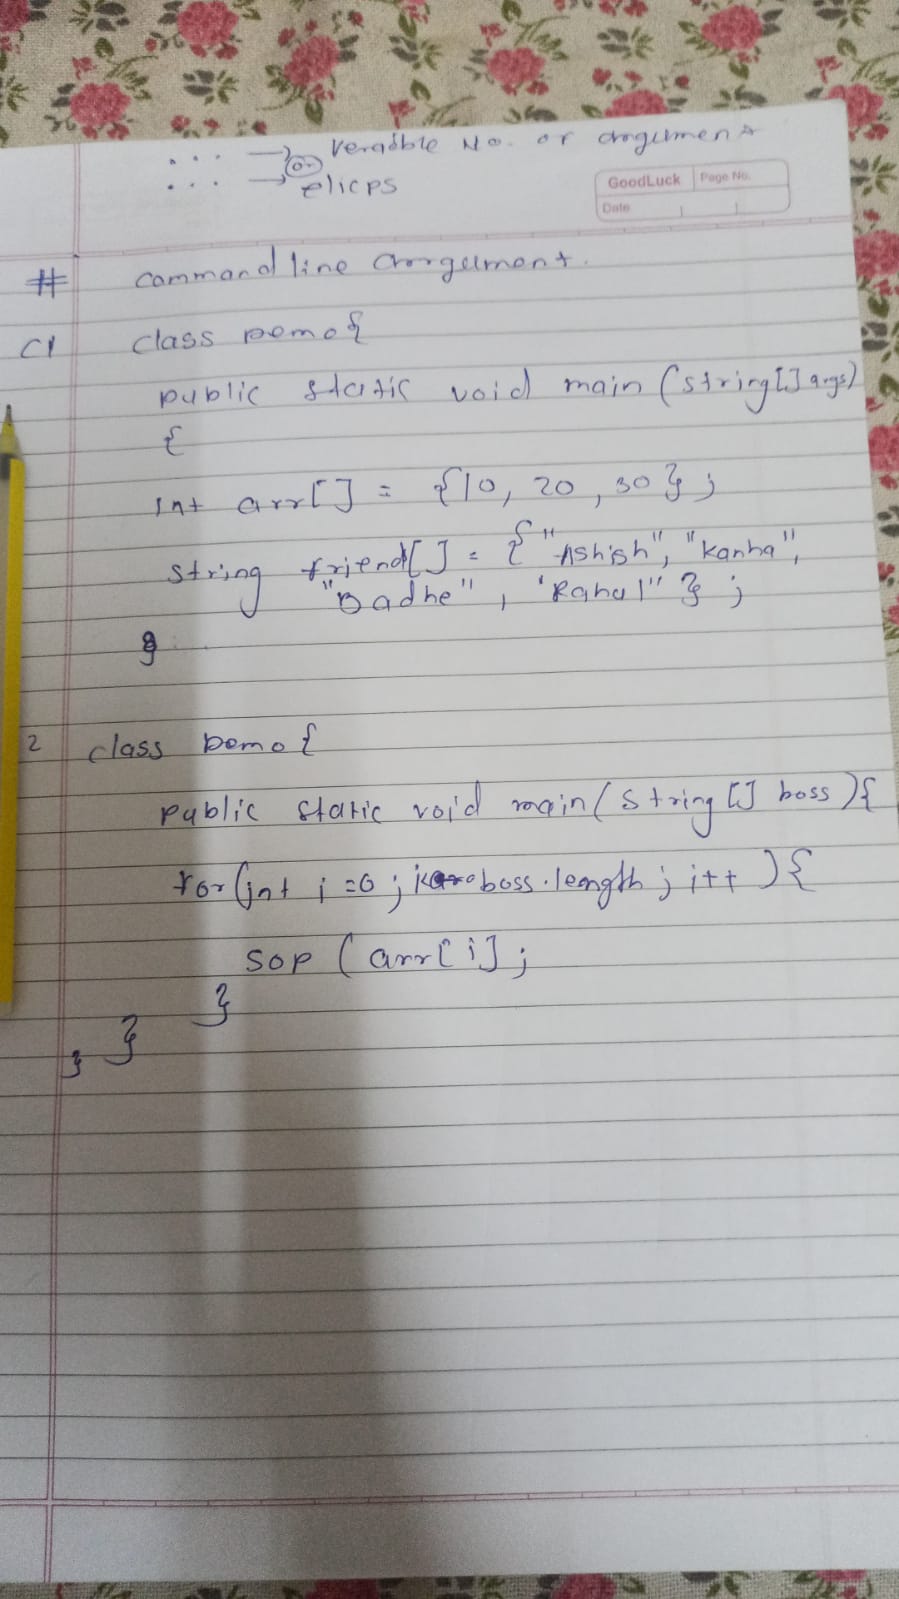 ... → Veriable No. or arrgument
(or)
... → elicps
GoodLuck Page No.
Date
# command line arrgument.
C1 class Demo{
public static void main (string[] args)
{
Int arr[] = {10, 20, 30};
string friend[] = { "Ashish", "Kanha",
"Badhe", 'Rahul" };
}
2 class Demo {
public static void main (string [] boss ){
for(int i =0 ; i< boss.length ; i++ ){
sop ( arr[i];
}
}
}